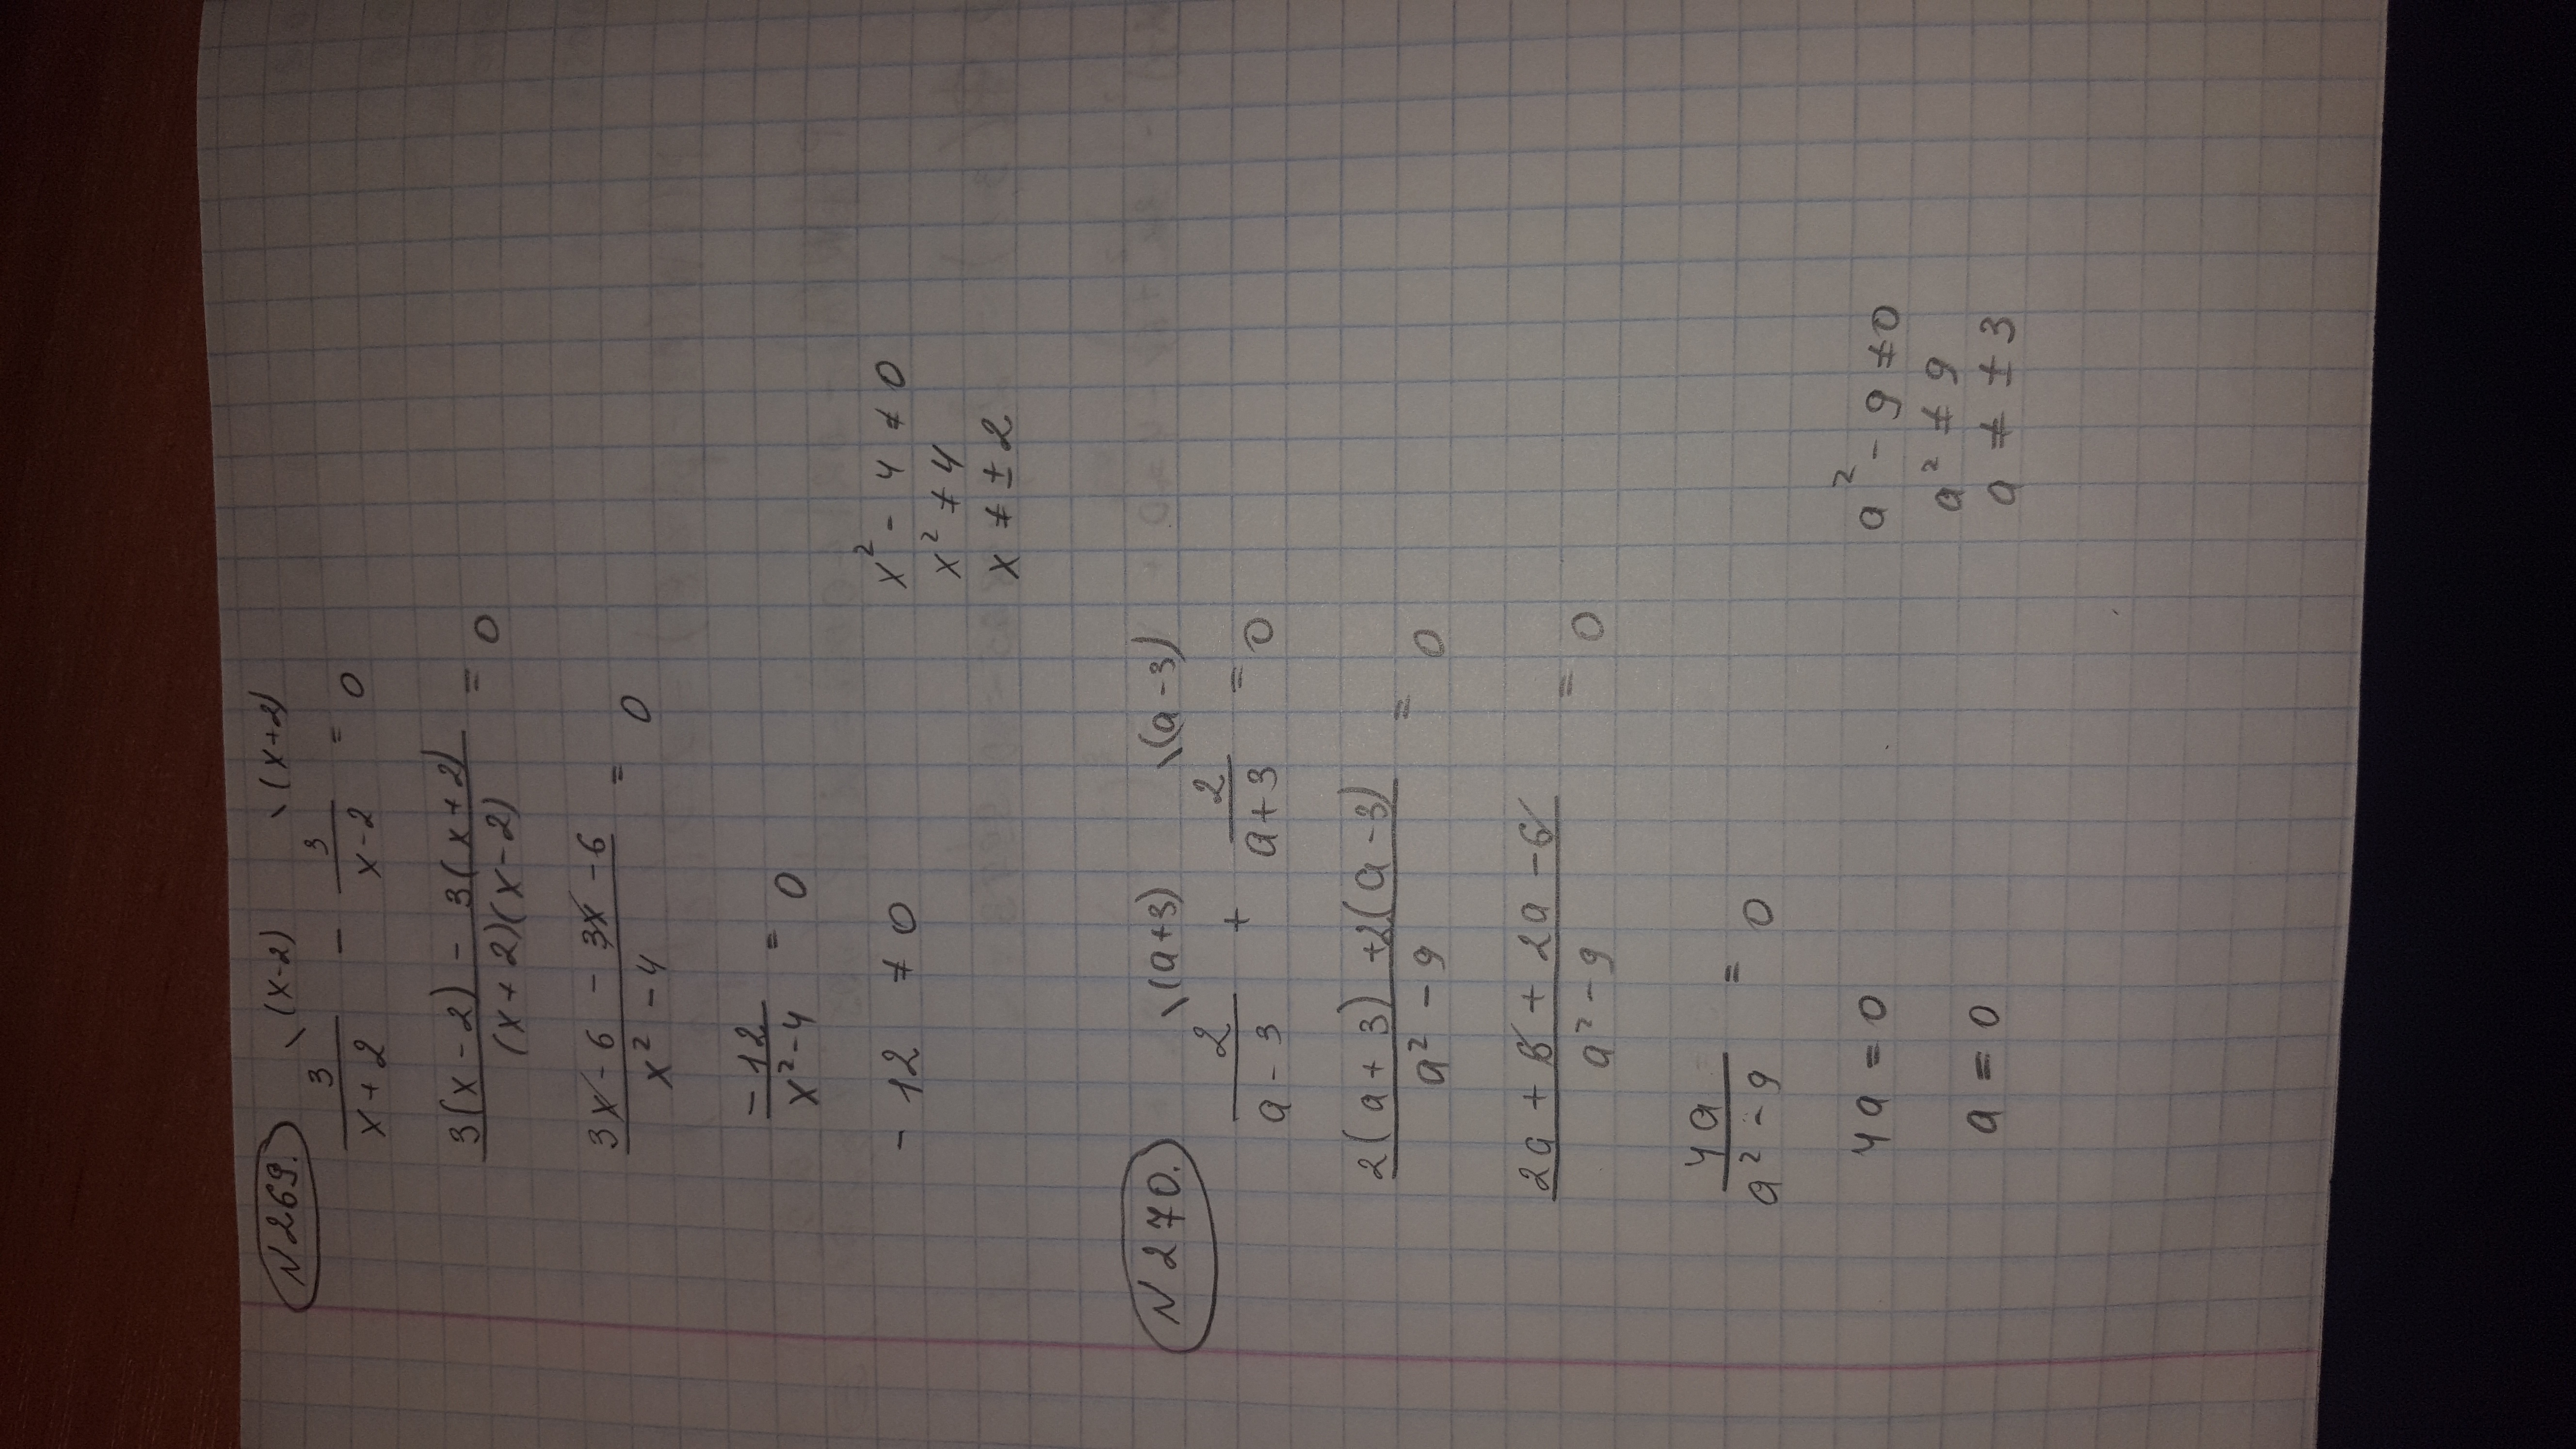 N 269.
3/(x+2) \(x-2) - 3/(x-2) \(x+2) = 0
(3(x-2) - 3(x+2))/((x+2)(x-2)) = 0
(3x-6 - 3x-6)/(x² - 4) = 0
-12/(x²-4) = 0
- 12 ≠ 0
x² - 4 ≠ 0
x² ≠ 4
x ≠ ± 2
N 270.
2/(a-3) \(a+3) + 2/(a+3) \(a-3) = 0
(2(a+3) + 2(a-3))/(a² - 9) = 0
(2a + 6 + 2a - 6)/(a² - 9) = 0
4a/(a² - 9) = 0
4a = 0
a = 0
a² - 9 ≠ 0
a² ≠ 9
a ≠ ± 3